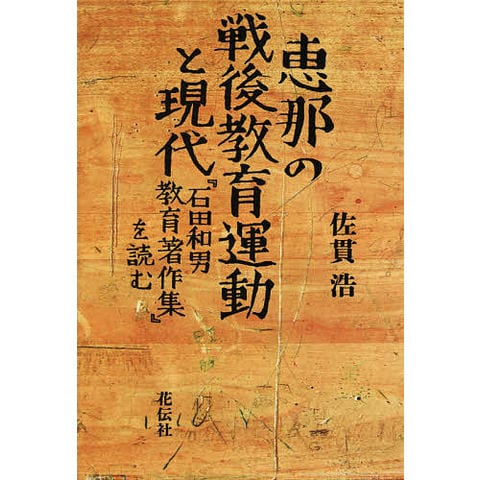 恵那の
戦後教育運動
と現代
『石田和男
教育著作集』
を読む
佐貫浩
花伝社